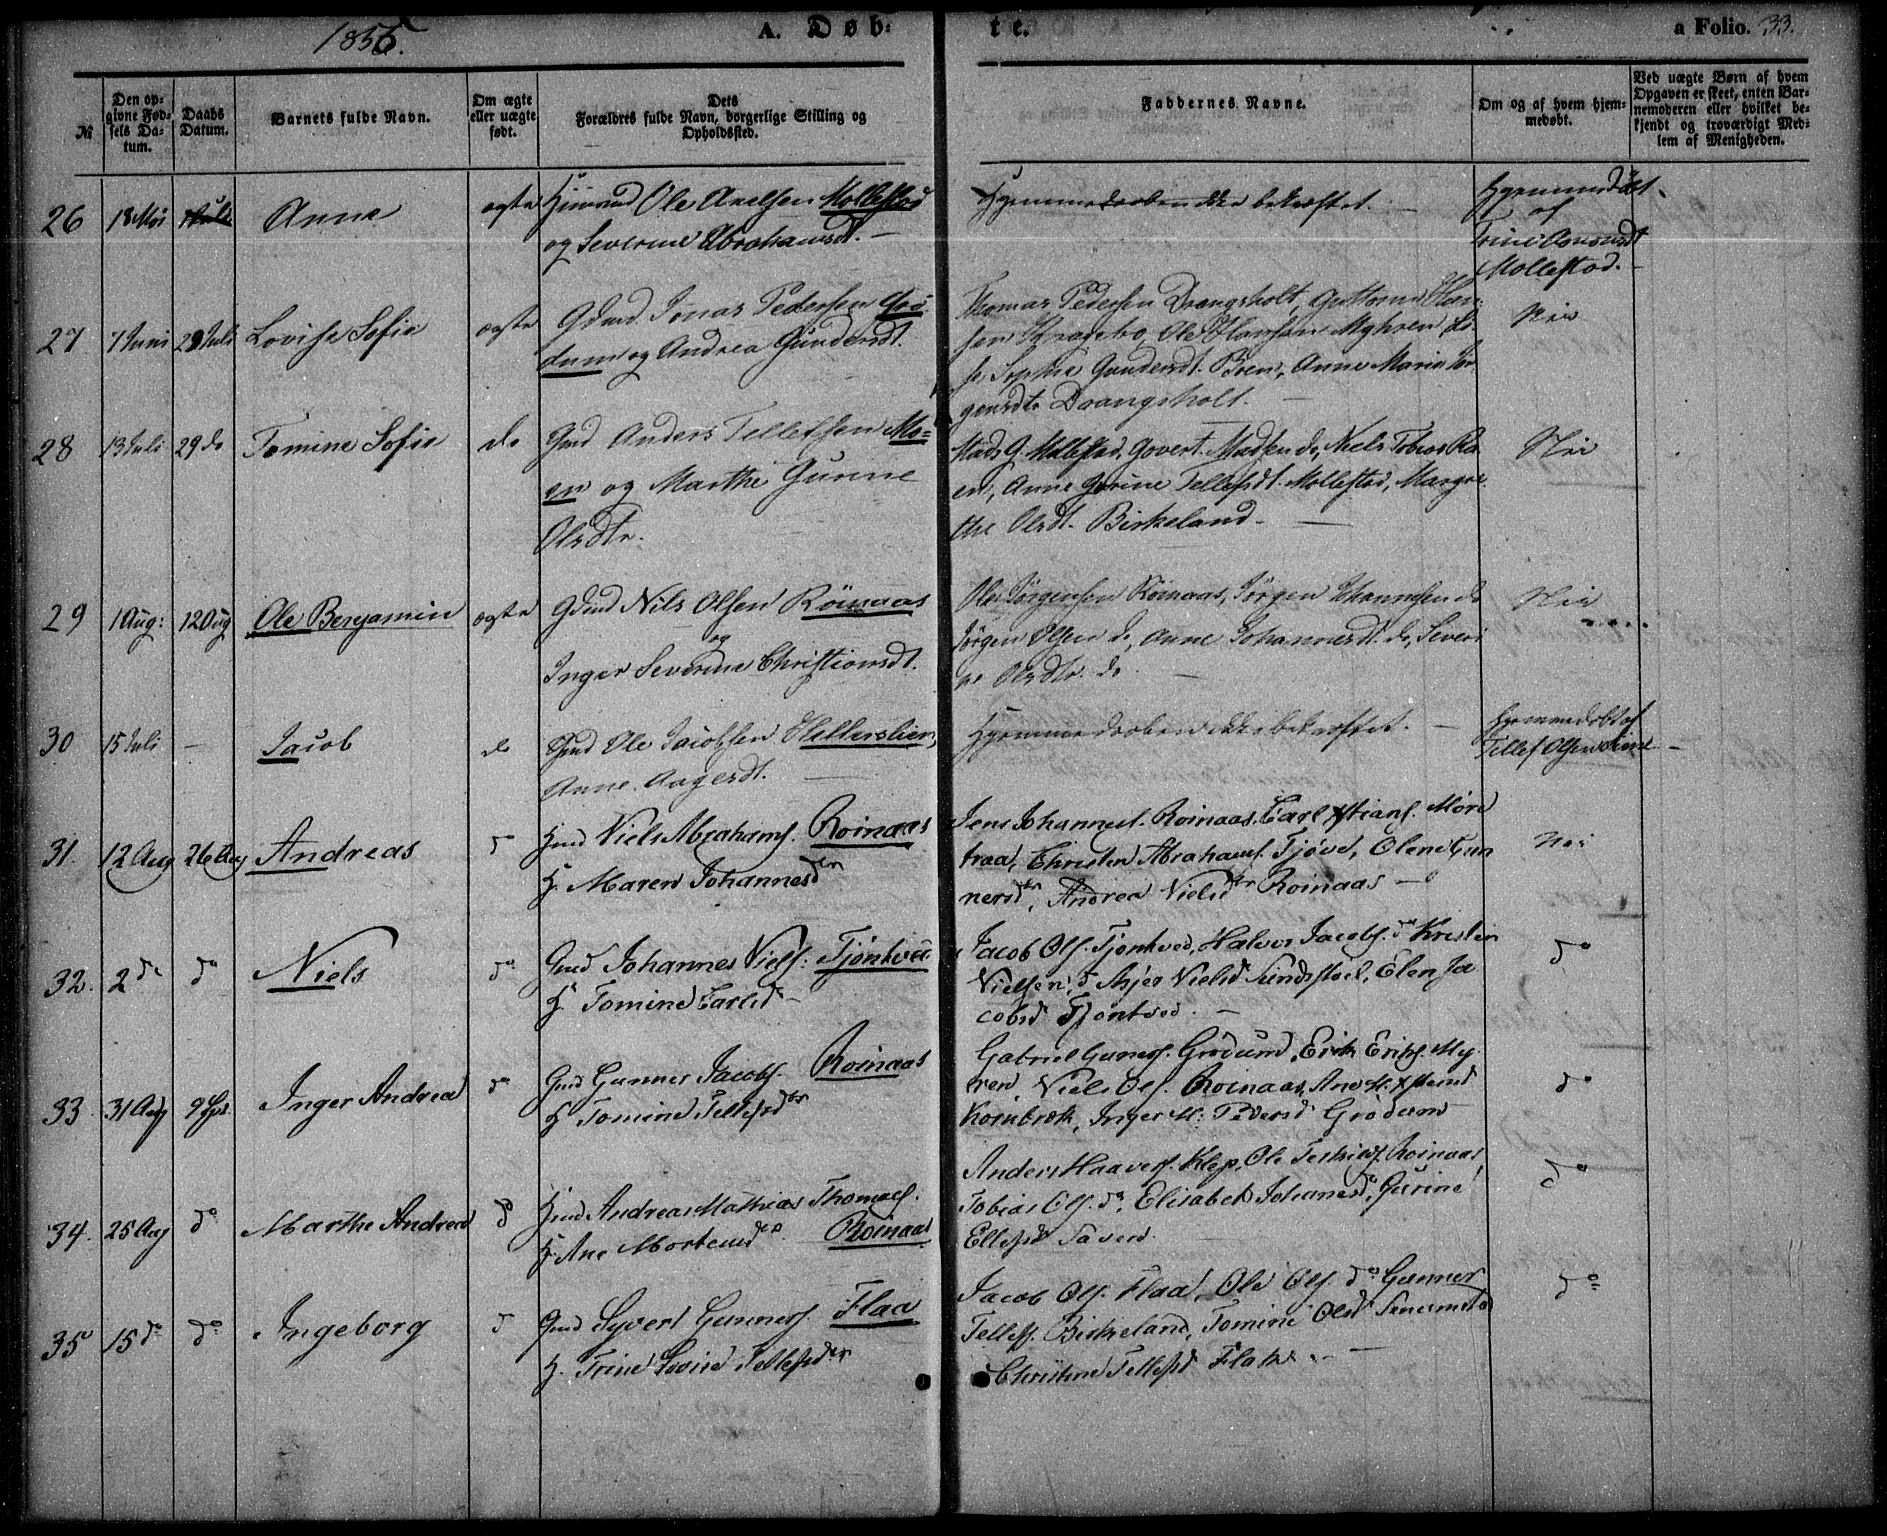 1855.
A. Døb-
te.
a Folio. 33.
№
Den op-
givne Fød-
sels Da-
tum.
Daabs
Datum.
Barnets fulde Navn.
Om ægte
eller uægte
født.
Dets
Forældres fulde Navn, borgerlige Stilling og
Opholdssted.
Faddernes Navne.
Om og af hvem hjem-
medøbt.
Ved uægte Børn af hvem
Opgaven er skeet, enten Bar-
nemoderen eller hvilket be-
kjendt og troværdigt Med-
lem af Menigheden.
26 18 Mai Anne ægte Ole Axelsen Mollestad
og Severine Abrahamsdt. –
Hjemmedaaben ikke bekræftet. –
Hjemmedøbt
af
Trine
Mollestad. –
27 7 Juni 29 Juli Lovise Sofie ægte Gdmd. Jonas Pedersen Grö-
dum og Andrea Gundersdt.
Thomas Pedersen Drangsholt, Guttorm Han-
sen Ole Hansen Myhren,
Sophie Gundersdt. Bren, Anne Maria Jör-
gensdtr Drangsholt. –
Nei
28 13 Juli 29 do Tomine Sofie do Gmd Anders Tellefsen Mo-
en og Marthe Gurine
Olsdtr.
Mads G. Mollestad, Govert Madsen do, Niels Tobias Ro-
en, Anne Gurine Tellefsdt. Mollestad, Margre-
the Olsdt. Birkeland –
Nei
29 1 Aug: 12 Aug Ole Benjamin ægte Gdmd Nils Olsen Röinaas
og
Inger Severine Christiansdt.
Ole Jörgensen Röinaas, Jörgen Johannesen do
Jörgen Olsen do, Anne Johannesdt. do, Severi-
ne Olsdtr. do –
Nei
30 15 Juli – Jacob do Gmd Ole Jacobsen Hellerslien,
Anne Aagesdt. –
Hjemmedaaben ikke bekræftet. –
Hjemmedøbt af
Tellef Olsen –
31. 12 Aug 26 Aug Andreas do Hmd Niels Abrahams. Roinaas
H. Maren Johannesdtr
Jens Johannes. Roinaas, Carl Xstians. More
traa, Christen Abrahams. Fjøve, Olene Gun
nersdtr, Andrea Nielsdtr Roinaas –
Nei
32. 2 do do Niels do Gmd Johannes Niels: Tjöntveit
H. Tomine Carlsd –
Jacob Ols. Tjöntved, Halvor Jacobs. do Kristen
Nielsen, do Asjer Nielsd Sundstoel, Elen Ja
cobsd Tjöntved. –
do
33. 31 Aug 9 Spt Inger Andrea do Gmd Gunner Jacobs. Roinaas
H Tomine Tellefsdtr
Gabriel Guners. Grödum, Erik Eriks. My
ren, Niels Ols. Roinaas, Ane M. Xstensd
Kornbræk, Inger M: Pedersd Grödum
do
34. 25 Aug do Marthe Andrea do Hmd Andreas Mathias Thomas.
H. Ane Mortensdtr. Roinaas
Anders Haavors. Klep, Ole Terkiels. Roinaas
Tobias Ols. do, Elisabet Johanesd, Gurine
Ellefsd Saveren.
do
35 15 do do Ingeborg do Gmd Syvert Gunners. Flaa
H. Trine Lovise Tellefsdtr
Jacob Ols. Flaa, Ole Ols. do Gunner
Tellefs. Birkeland, Tomine Olsd
Christine Tellefsd Flak –
do